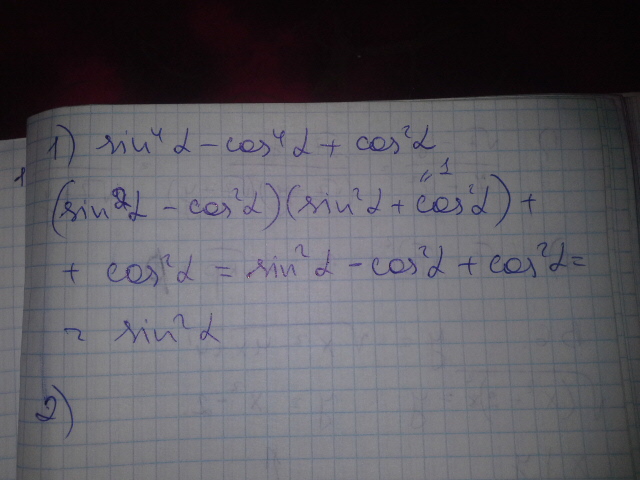 1) sin⁴α – cos⁴α + cos²α
" 1
(sin²α – cos²α)(sin²α + cos²α) +
+ cos²α = sin²α – cos²α + cos²α =
= sin²α
2)